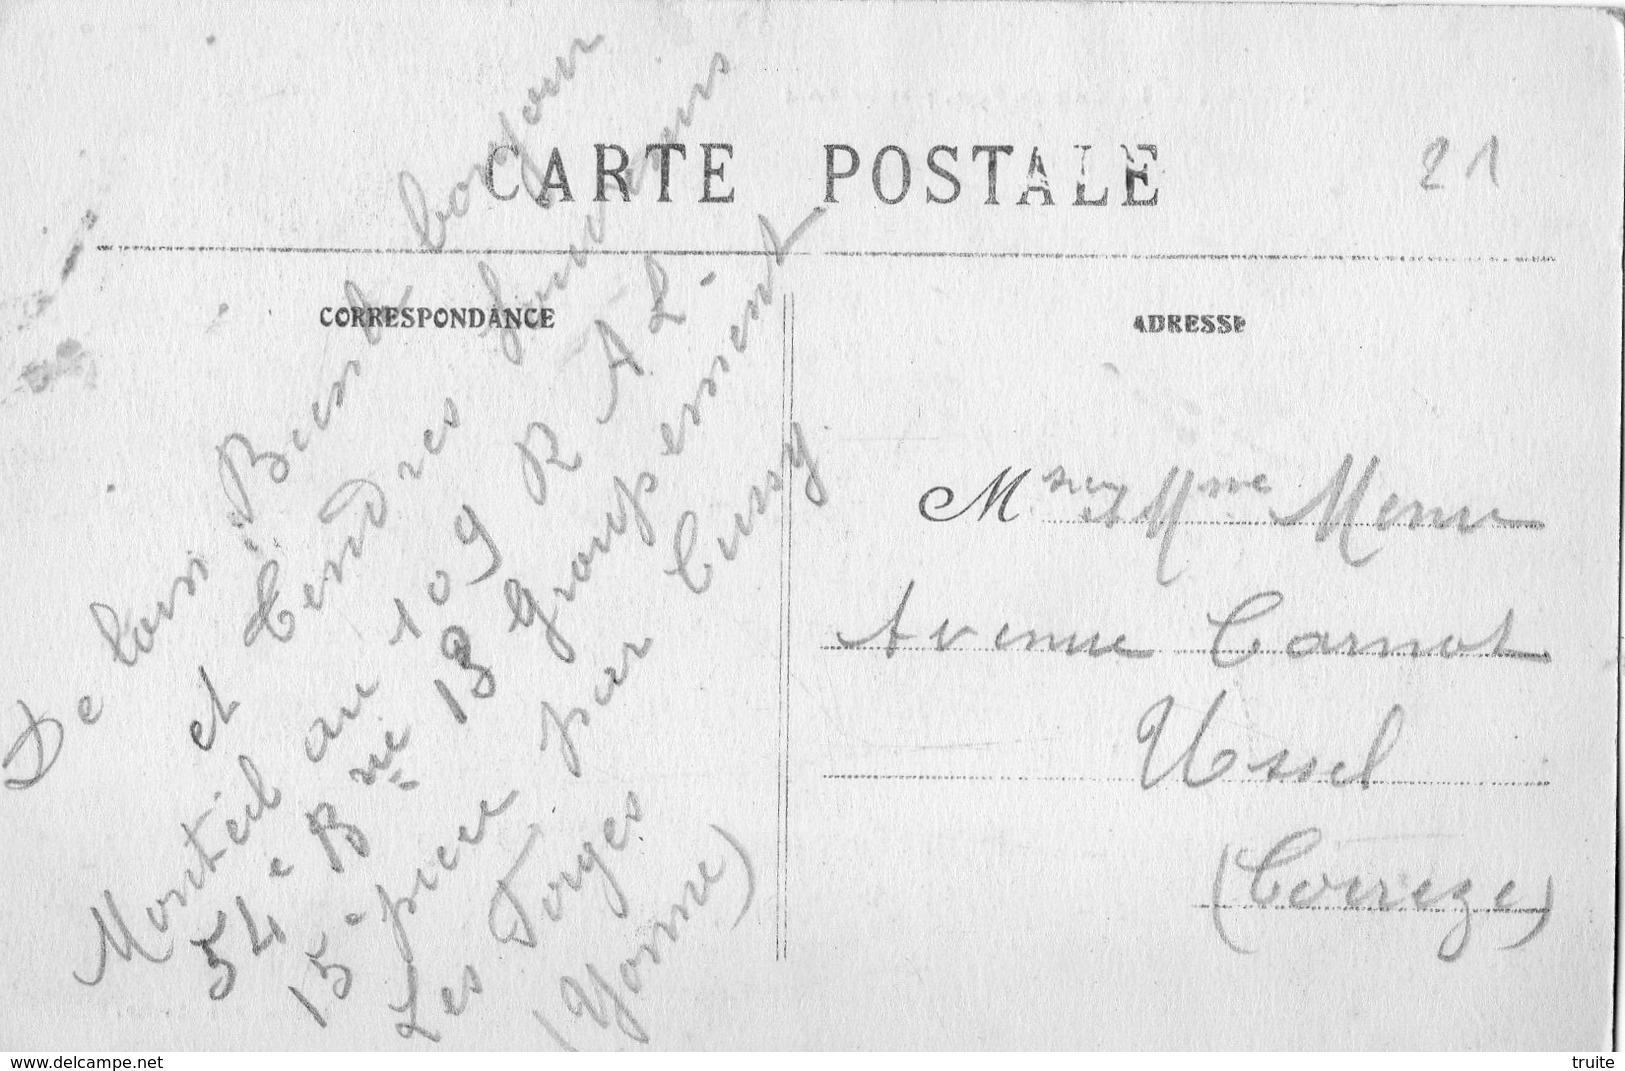 CARTE POSTALE
21
CORRESPONDANCE
De loin Bien bonjour
et tendres
Monteil au 109 R A L
54e Bie 13e Groupement
15e piece par Cussy
Les Forges
(Yonne)
ADRESSE
Msieur Mme Menu
Avenue Carnot
Ussel
(Correze)
delcampe.net
truite